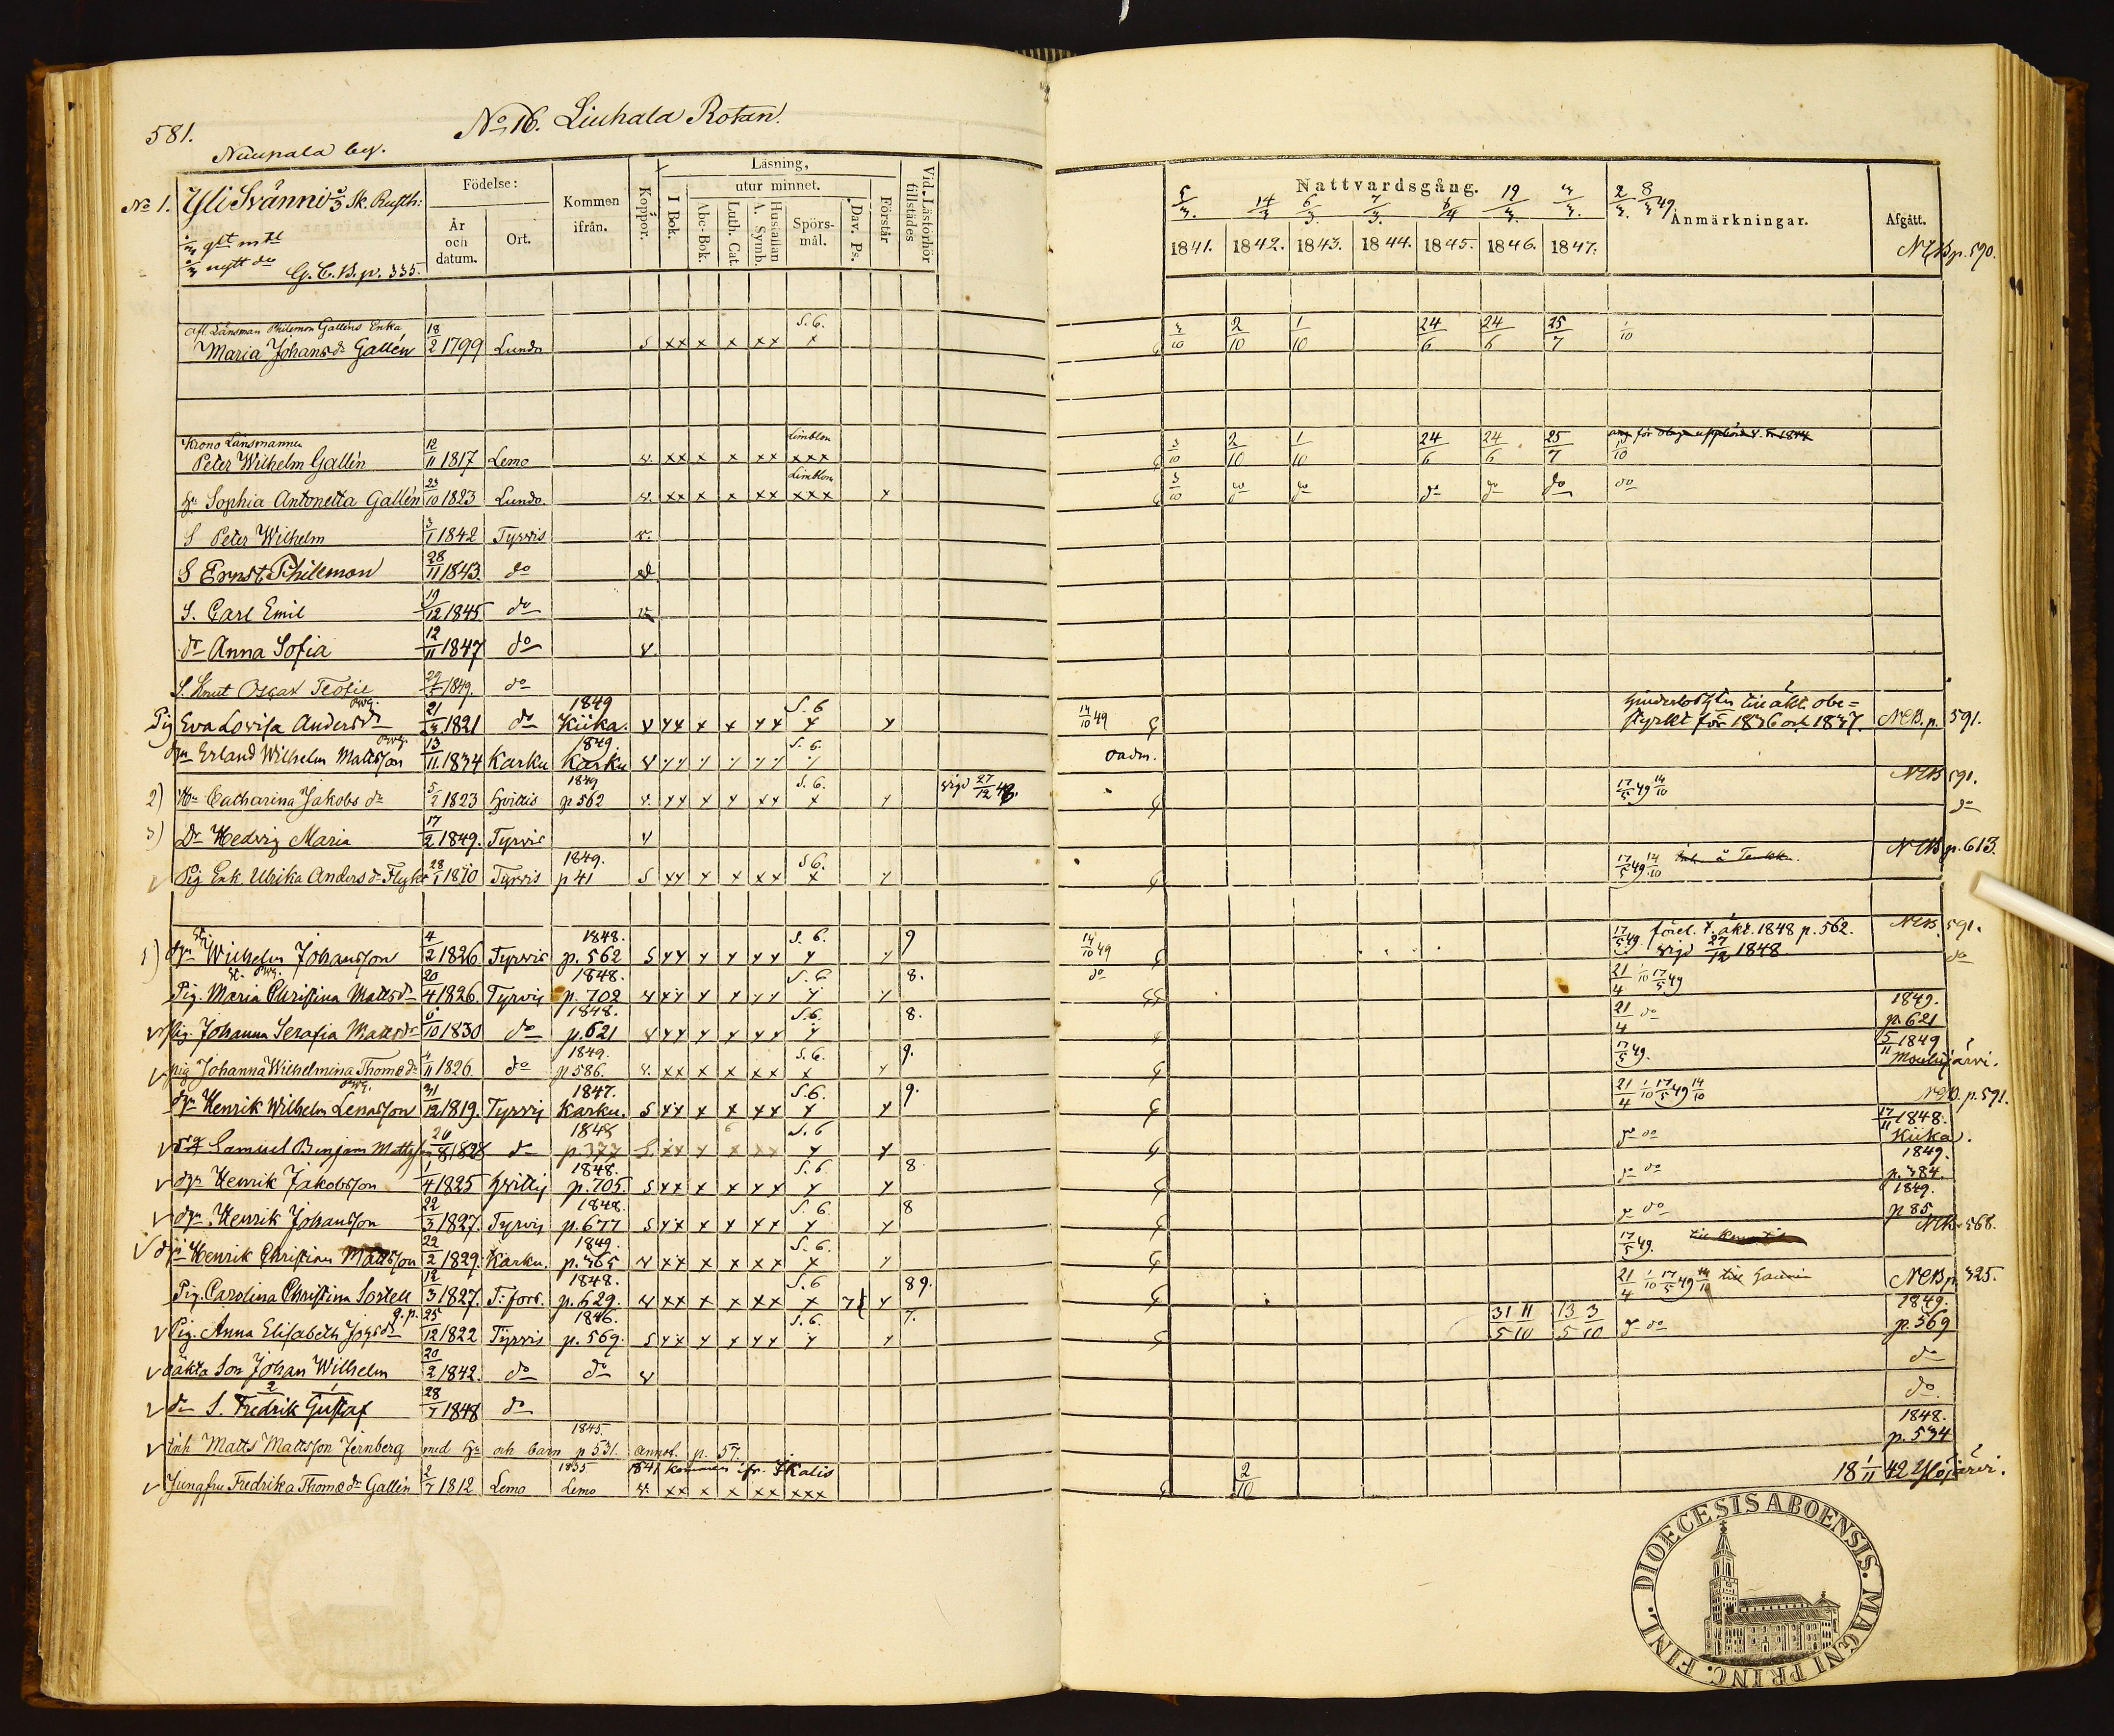 581.
No 16. Liuhala Rotan.
Nuupala by.
No 1. Yli Svänni 2/3 Sk. Rusth:
glt mtl
nytt do
G.C.B. p. 335.
Födelse:
År och datum.
Ort.
Kommen ifrån.
Koppor.
Läsning,
I Bok.
utur minnet.
Abc-Bok.
Luth. Cat.
Hustaflan A. Symb.
Spörs-mål.
Dav. Ps.
Förstår
Vid Läsförhör tillstädes
Nattvardsgång.
1841. 1842. 1843. 1844. 1845. 1846. 1847.
Anmärkningar.
Afgått.
NCB p. 590.
Afl. Länsman Philemon Galléns Enka
Maria Johansdr Gallén 18/2 1799 Lundo S xx x x xx S.6. x 2/10 1/10 24/6 24/6 25/7 1/10
Krono Länsmannen
Peter Wilhelm Gallén 12/11 1817 Lemo v. xx x x xx Limblom xxx 3/10 2/10 1/10 24/6 24/6 25/7 1/10
Hu Sophia Antonetta Gallén 23/10 1823 Lundo v. xx x x xx Limblom xxx x 3/10 do do do do do do
S Peter Wilhelm 3/1 1842 Tyrvis v.
S Ernst Philemon 28/11 1843 do
S. Carl Emil 19/12 1845 do v
dr Anna Sofia 12/11 1847 do v.
S. Knut Oscar Teofil 1849. do
Pig Eva Lovisa Andersdr 21/3 1821 do 1849 Kiika. v xx x x xx S.6 x x 14/10 49 Hinderlöshten till äkt. obe=
styrkt för 1836 och 1837. NCB. p. 591.
Erland Wilhelm Mattsson 13/11 1834 Karku 1849. Karku v S.6. oadm. NCB 591.
2) Hu Catharina Jakobs dr 5/2 1823 Hvittis 1849 p 562 v. xx x x xx S.6. x vigd 27/12 48. 17/5 49 14/10 do
3) Dr Hedvig Maria 17/2 1849. Tyrvis v
Pig Enk. Ulrika Anders dr Flyckt 28/1 1810 Tyrvis 1849. p 41 S xx x x xx S6. x 17/5 49 14/10 NCB p. 613.
1) Wilhelm Johansson 4/2 1826 Tyrvis 1848. p. 562 S xx x x xx S.6. 9 14/10 49 17/5 49. förel. t. äkt. 1848 p. 562.
vigd 27/12 1848 NCB. 591.
Pig. Maria Christina Mattsdr 20/4 1826. Tyrvis 1848. p. 702 v xx x x xx S.6 8. do 21/4 1/10 17/5 49 do
Pig. Johanna Serafia Mattsdr 6/10 1830 do 1848. p. 621 v xx S.6. 8. 21/4 do 1849. p. 621
pig Johanna Wilhelmina Thomædr 4/11 1826. do 1849. p 586. v. xx x x xx S.6. x 9. 17/5 49. 5/11 1849 Mouhijärvi.
Henrik Wilhelm Lenasson 31/12 1819. Tyrvis 1847. Karku. S xx x x xx S.6. 9. 21/4 1/10 17/5 49 14/10 NCB. p. 591.
Samuel Benjam Mattsson 26/8 1828 do 1848 p. 377 S. xx S.6 do do 17/11 1848. Kiika.
Henrik Jakobsson 1/4 1825 Hvittis 1848. p. 705. S xx x x xx S.6. 8. do do 1849. p. 384.
Henrik Johansson 22/3 1827. Tyrvis 1848. p. 677 S xx x x xx S.6. 8 do do 1849. p 85
Henrik Christian Mattsson 22/2 1829. Karku. 1849. p. 365 v xx x x xx S.6. 17/5 49. NCB 568.
Pig. Carolina Christina Sortell 12/3 1827. T: fors. 1848. p. 629. v xx x x xx S.6 x 89. 21/4 1/10 17/5 49 14/10 till NCB p. 325.
Pig. Anna Elisabeth Johsdr 25/12 1822 Tyrvis 1846. p. 569. S xx S.6. 7. 31/5 11/10 13/5 3/10 do do 1849. p. 569
oäkta Son Johan Wilhelm 20/2 1842. do do v do
do S. Fredrik Gustaf 28/7 1848 do do.
Inh Matts Mattsson Jernberg med Hu och barn 1845. p 531. annot. p. 57. 1848. p. 534
Jungfru Fredrika Thomædr Gallén 2/7 1812 Lemo 1835 Lemo 1841 kommen ifr. Ikalis v. xx x x xx xxx 2/10 18 1/11 42 Ylöjärvi.
FINL. DIOECESIS ABOENSIS. MAGNI PRINC.